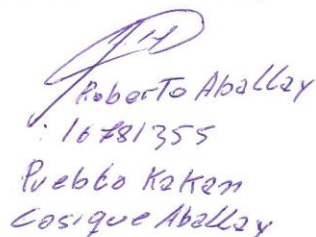 Roberto Aballay
: 16781355
Pueblo Kakan
Casique Aballay